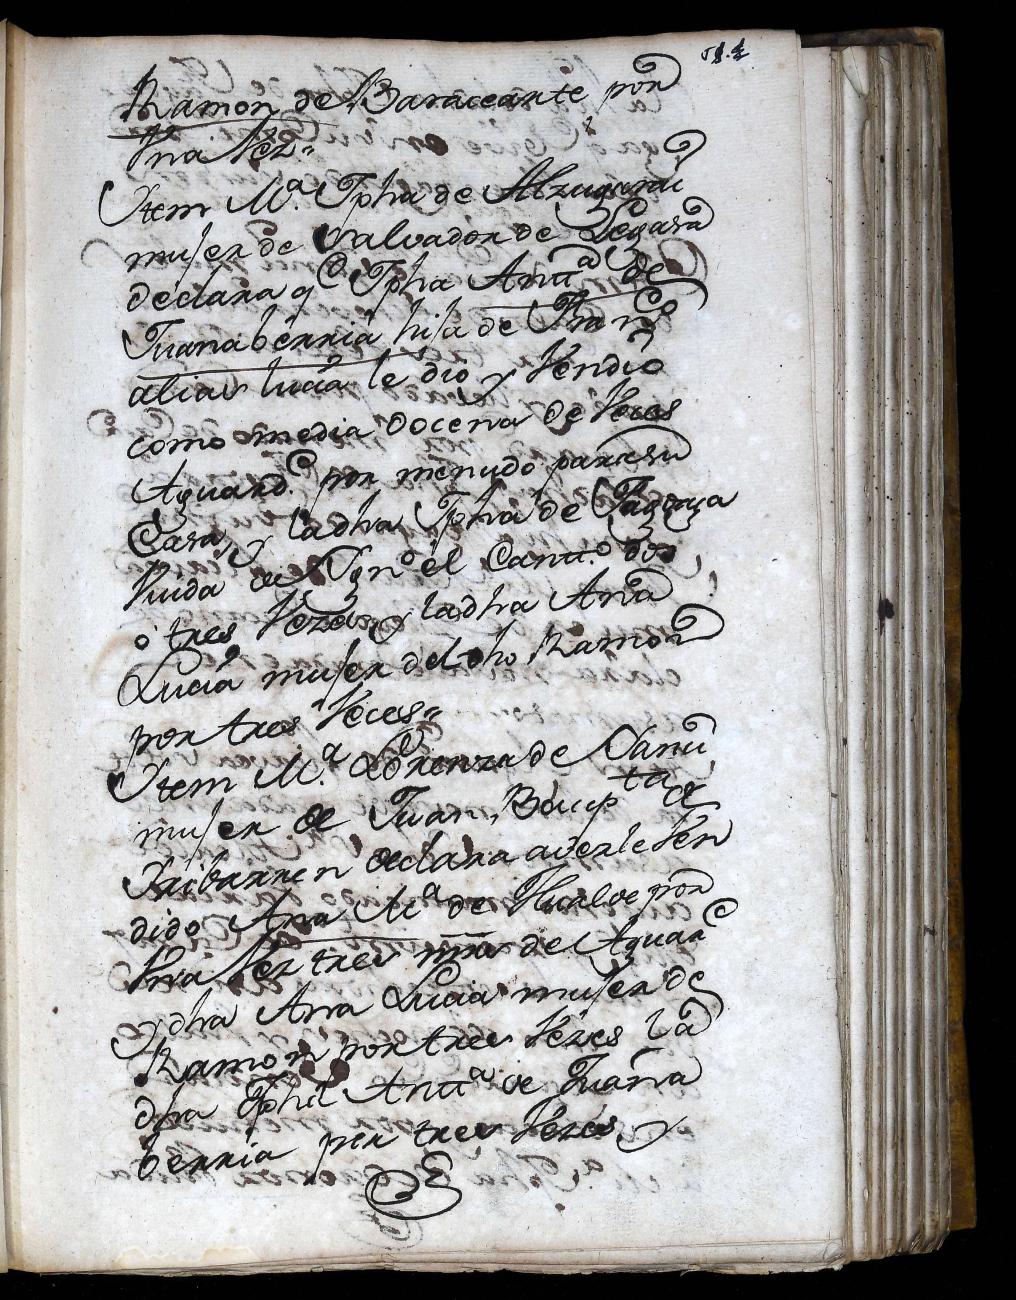 Ramon de Baraceante por
Vna Vez=
Ytem M.ª Jpha de Alzugarai
muger de Salvador de Legasa
declara q.e Jpha Antt.ª de
Juanaberria hija de Fran.co
alias lucia le dio y Vendio
como media docena de Veces
Aguard.e por menudo para su
Casa, y la dha Jpha de
Viuda de Ygn.º el Cantt.º dos
ò tres Vezes, y la dha Ana
Lucia muger del dho Ramon
por tres Veces=
Ytem M.ª Lorenza de
muger de Juan Baup.ta de
Yribarren declara averle Ven
dido Ana M.ª de Yturalde por
Vna Vez tres mrs de Aguar.e
y dha Ana Lucia muger de
Ramon por tres Vezes la
dha Jpha Antt.ª de Juana
berria por tres Vezes y